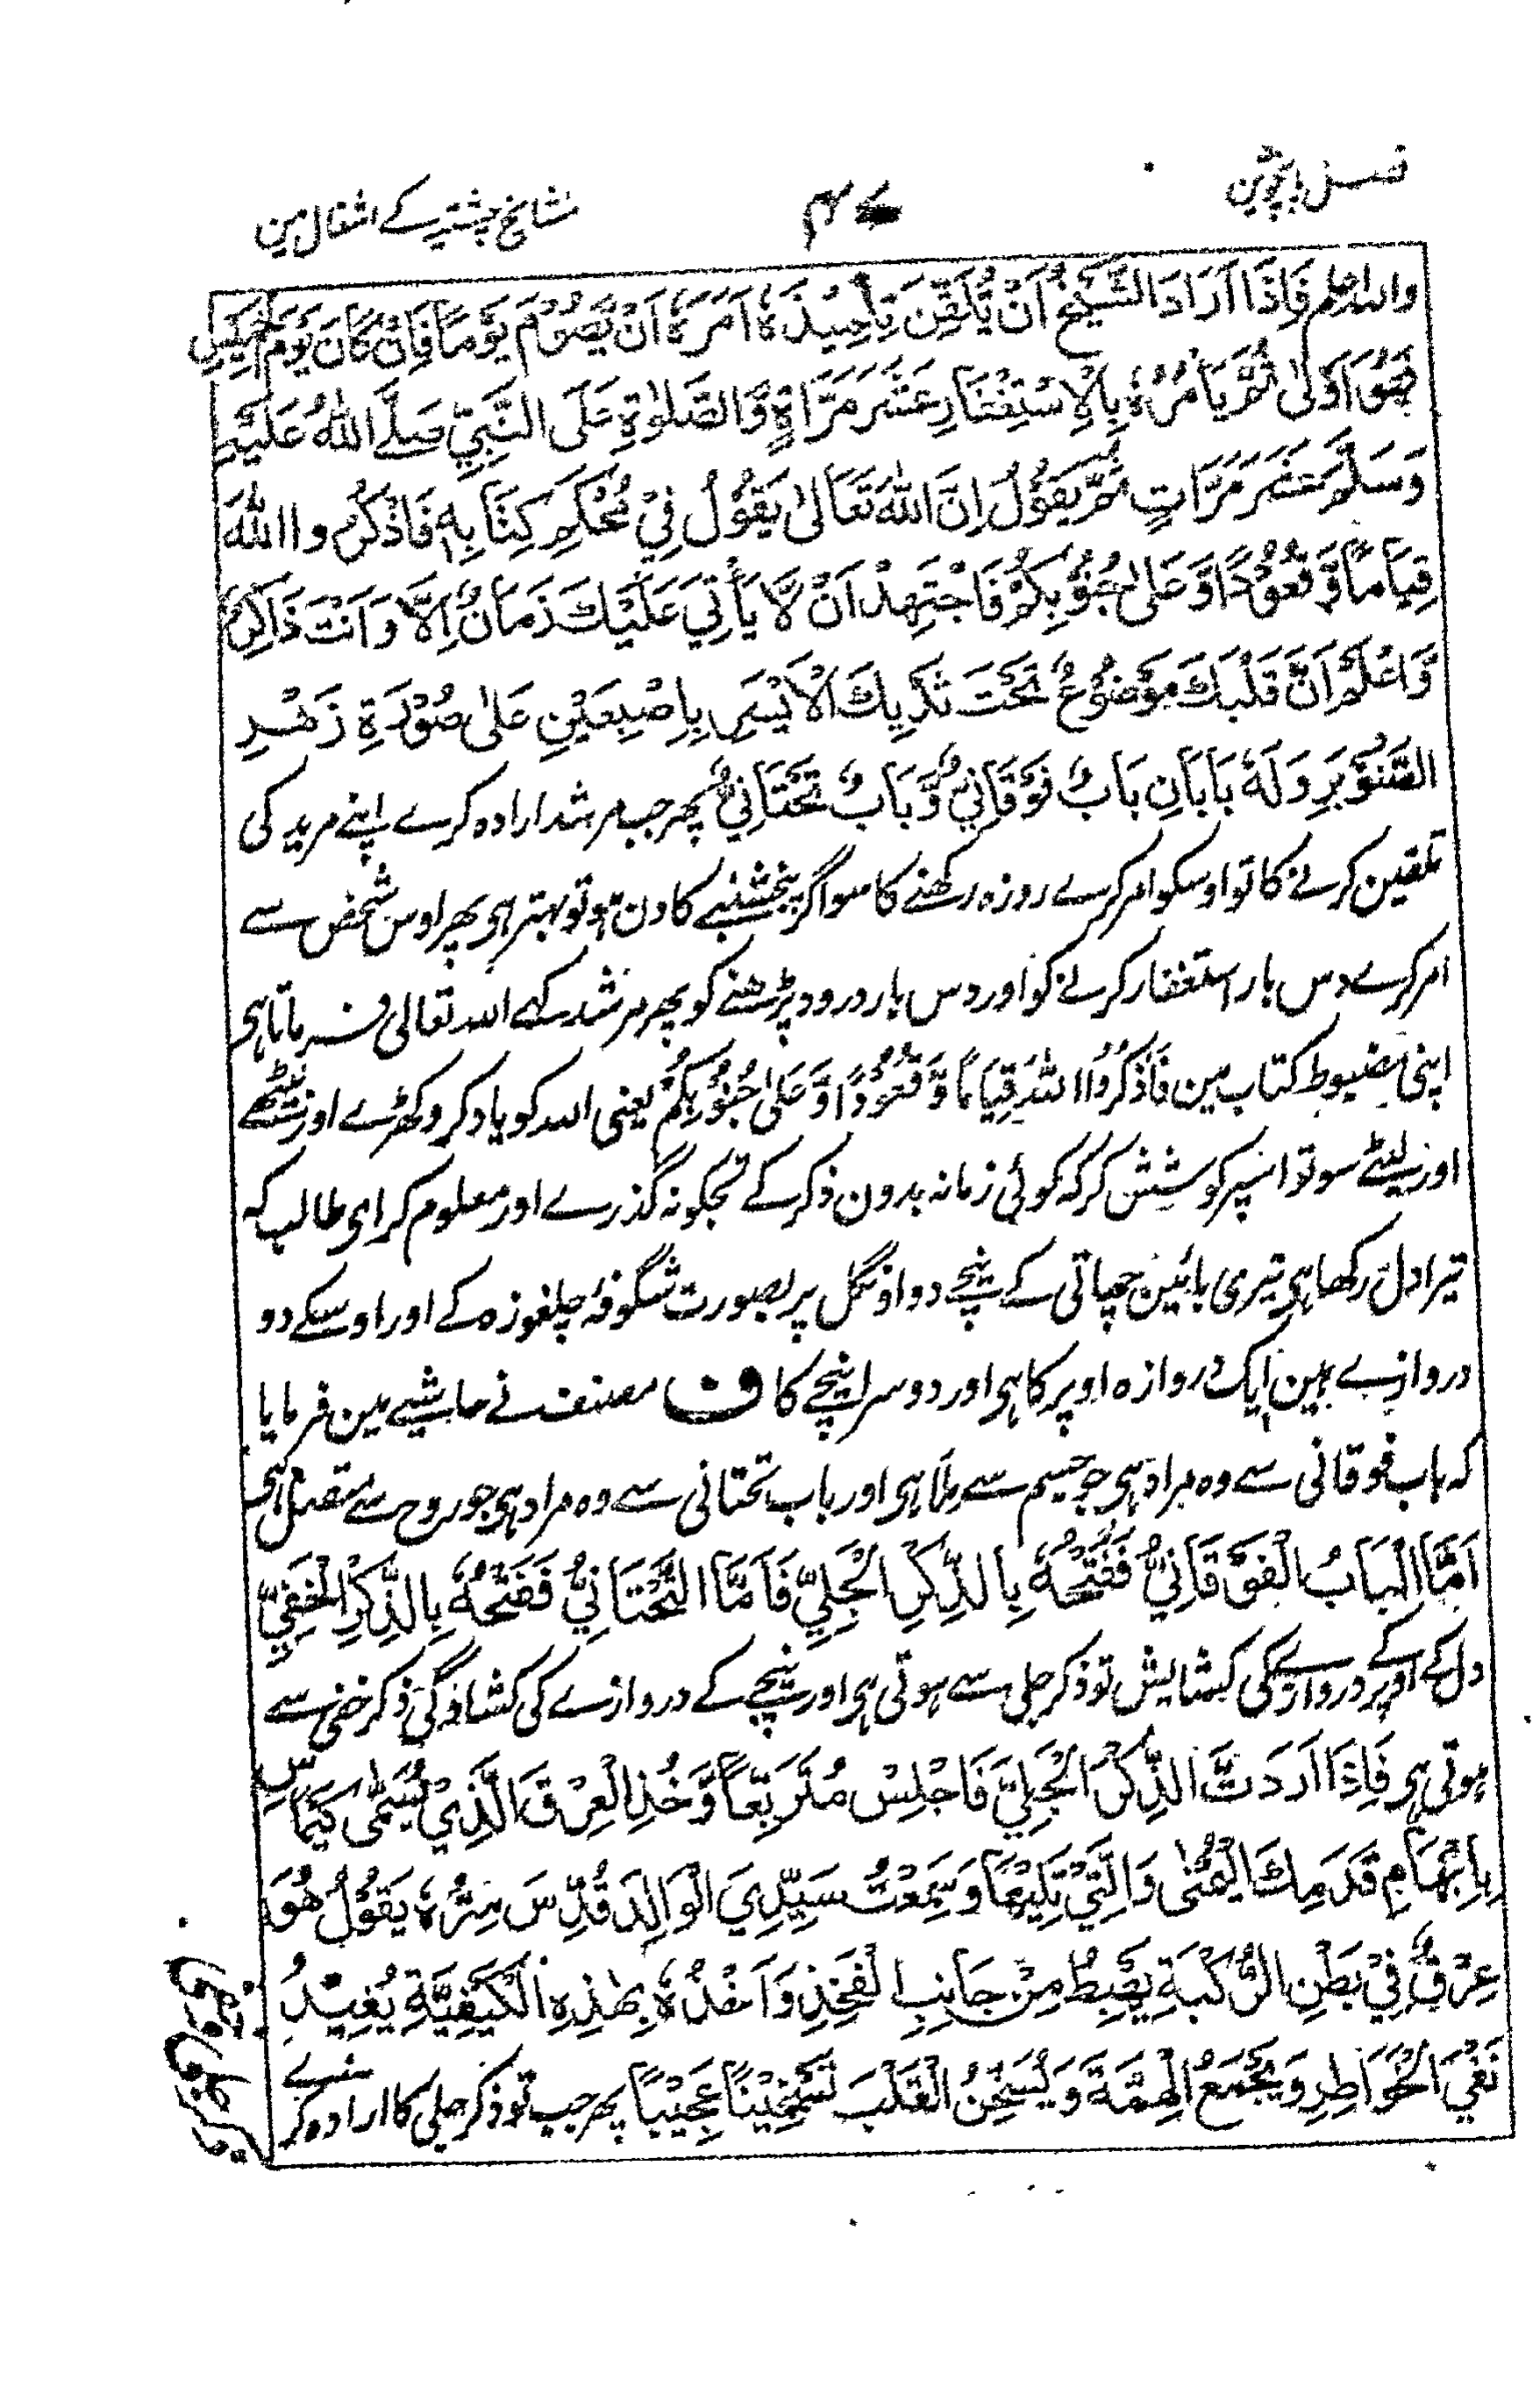 فصل پانچوین
۴۷
مشائخ چشتیہ کے اشغال مین
واللہ اعلم فَاِذَا اَرَادَ الشَّيْخُ اَنْ يُّلَقِّنَ تِلْمِيْذَهٗ اَمَرَهٗ اَنْ يَّصُوْمَ يَوْمًا فَاِنْ كَانَ يَوْمَ الْخَمِيْسِ
فَهُوَ اَوْلٰى ثُمَّ يَاْمُرُهٗ بِالْاِسْتِغْفَارِ عَشَرَ مَرَّاةٍ وَّالصَّلٰوةِ عَلَى النَّبِيِّ صَلَّى اللهُ عَلَيْهِ
وَسَلَّمَ عَشَرَ مَرَّاتٍ ثُمَّ يَقُوْلُ اِنَّ اللهَ تَعَالٰى يَقُوْلُ فِيْ مُحْكَمِ كِتَابِهٖ فَاذْكُرُوا اللهَ
قِيَامًا وَّقُعُوْدًا وَّعَلٰى جُنُوْبِكُمْ فَاجْتَهِدْ اَنْ لَّا يَأْتِيَ عَلَيْكَ زَمَانٌ اِلَّا وَاَنْتَ ذَاكِرٌ
وَّاعْلَمْ اَنَّ قَلْبَكَ مَوْضُوْعٌ تَحْتَ ثَدْيِكَ الْاَيْسَرِ بِاِصْبِعَيْنِ عَلٰى صُوْرَةِ زَهْرِ
الصَّنَوْبَرِ وَلَهٗ بَابَانِ بَابٌ فَوْقَانِيٌّ وَّبَابٌ تَحْتَانِيٌّ پھر جب مرشد ارادہ کرے اپنے مرید کی
تلقین کرنے کا تو اوسکو امر کرے روزہ رکھنے کا سو اگر پنجشنبے کا دن ہو تو بہتر ہی پھر اوس شخص سے
امر کرے دس بار استغفار کرنے کو اور دس بار درود پڑھنے کو پھر مرشد کہے اللہ تعالی فرماتا ہی
اپنی مضبوط کتاب مین فَاذْكُرُوا اللهَ قِيَامًا وَّقُعُوْدًا وَّعَلٰى جُنُوْبِكُمْ یعنی اللہ کو یاد کرو کھڑے اور بیٹھے
اور لیٹے سو تو اسپر کوشش کر کہ کوئی زمانہ بدون ذکر کے تجکو نہ گذرے اور معلوم کر ای طالب کہ
تیرا دل رکھا ہی تیری بائین چھاتی کے نیچے دو اونگل پر بصورت شگوفۂ چلغوزہ کے اور اوسکے دو
دروازے ہین ایک دروازہ اوپر کا ہی اور دوسرا نیچے کا ف مصنف نے حاشیے مین فرمایا
کہ باب فوقانی سے وہ مراد ہی جو جسم سے ملا ہی اور باب تحتانی سے وہ مراد ہی جو روح سے متصل ہی
اَمَّا الْبَابُ الْفَوْقَانِيُّ فَفَتْحُهٗ بِالذِّكْرِ الْجَلِيِّ فَاَمَّا التَّحْتَانِيُّ فَفَتْحُهٗ بِالذِّكْرِ الْخَفِيِّ
دل کے اوپر کے دروازے کی کشایش تو ذکر جلی سے ہوتی ہی اور نیچے کے دروازے کی کشادگی ذکر خفی سے
ہوتی ہی فَاِذَا اَرَدَتَّ الذِّكْرَ الْجَلِيَّ فَاجْلِسْ مُتَرَبِّعًا وَّخُذِ الْعِرْقَ الَّذِيْ يُسَمّٰى كَيْمَاسْ
بِاِبْهَامِ قَدَمِكَ الْيُمْنٰى وَالَّتِيْ تَلِيْهَا وَسَمِعْتُ سَيِّدِيَ الْوَالِدَ قُدِّسَ سِرُّهٗ يَقُوْلُ هُوَ
عِرْقٌ فِيْ بَطْنِ الرُّكْبَةِ يَهْبِطُ مِنْ جَانِبِ الْفَخِذِ وَاَخْذُهٗ بِهٰذِهِ الْكَيْفِيَّةِ يُفِيْدُ
نَفْيَ الْخَوَاطِرِ وَيَجْمَعُ الْهِمَّةَ وَيُسَخِّنُ الْقَلْبَ تَسْخِيْنًا عَجِيْبًا پھر جب تو ذکر جلی کا ارادہ کرے